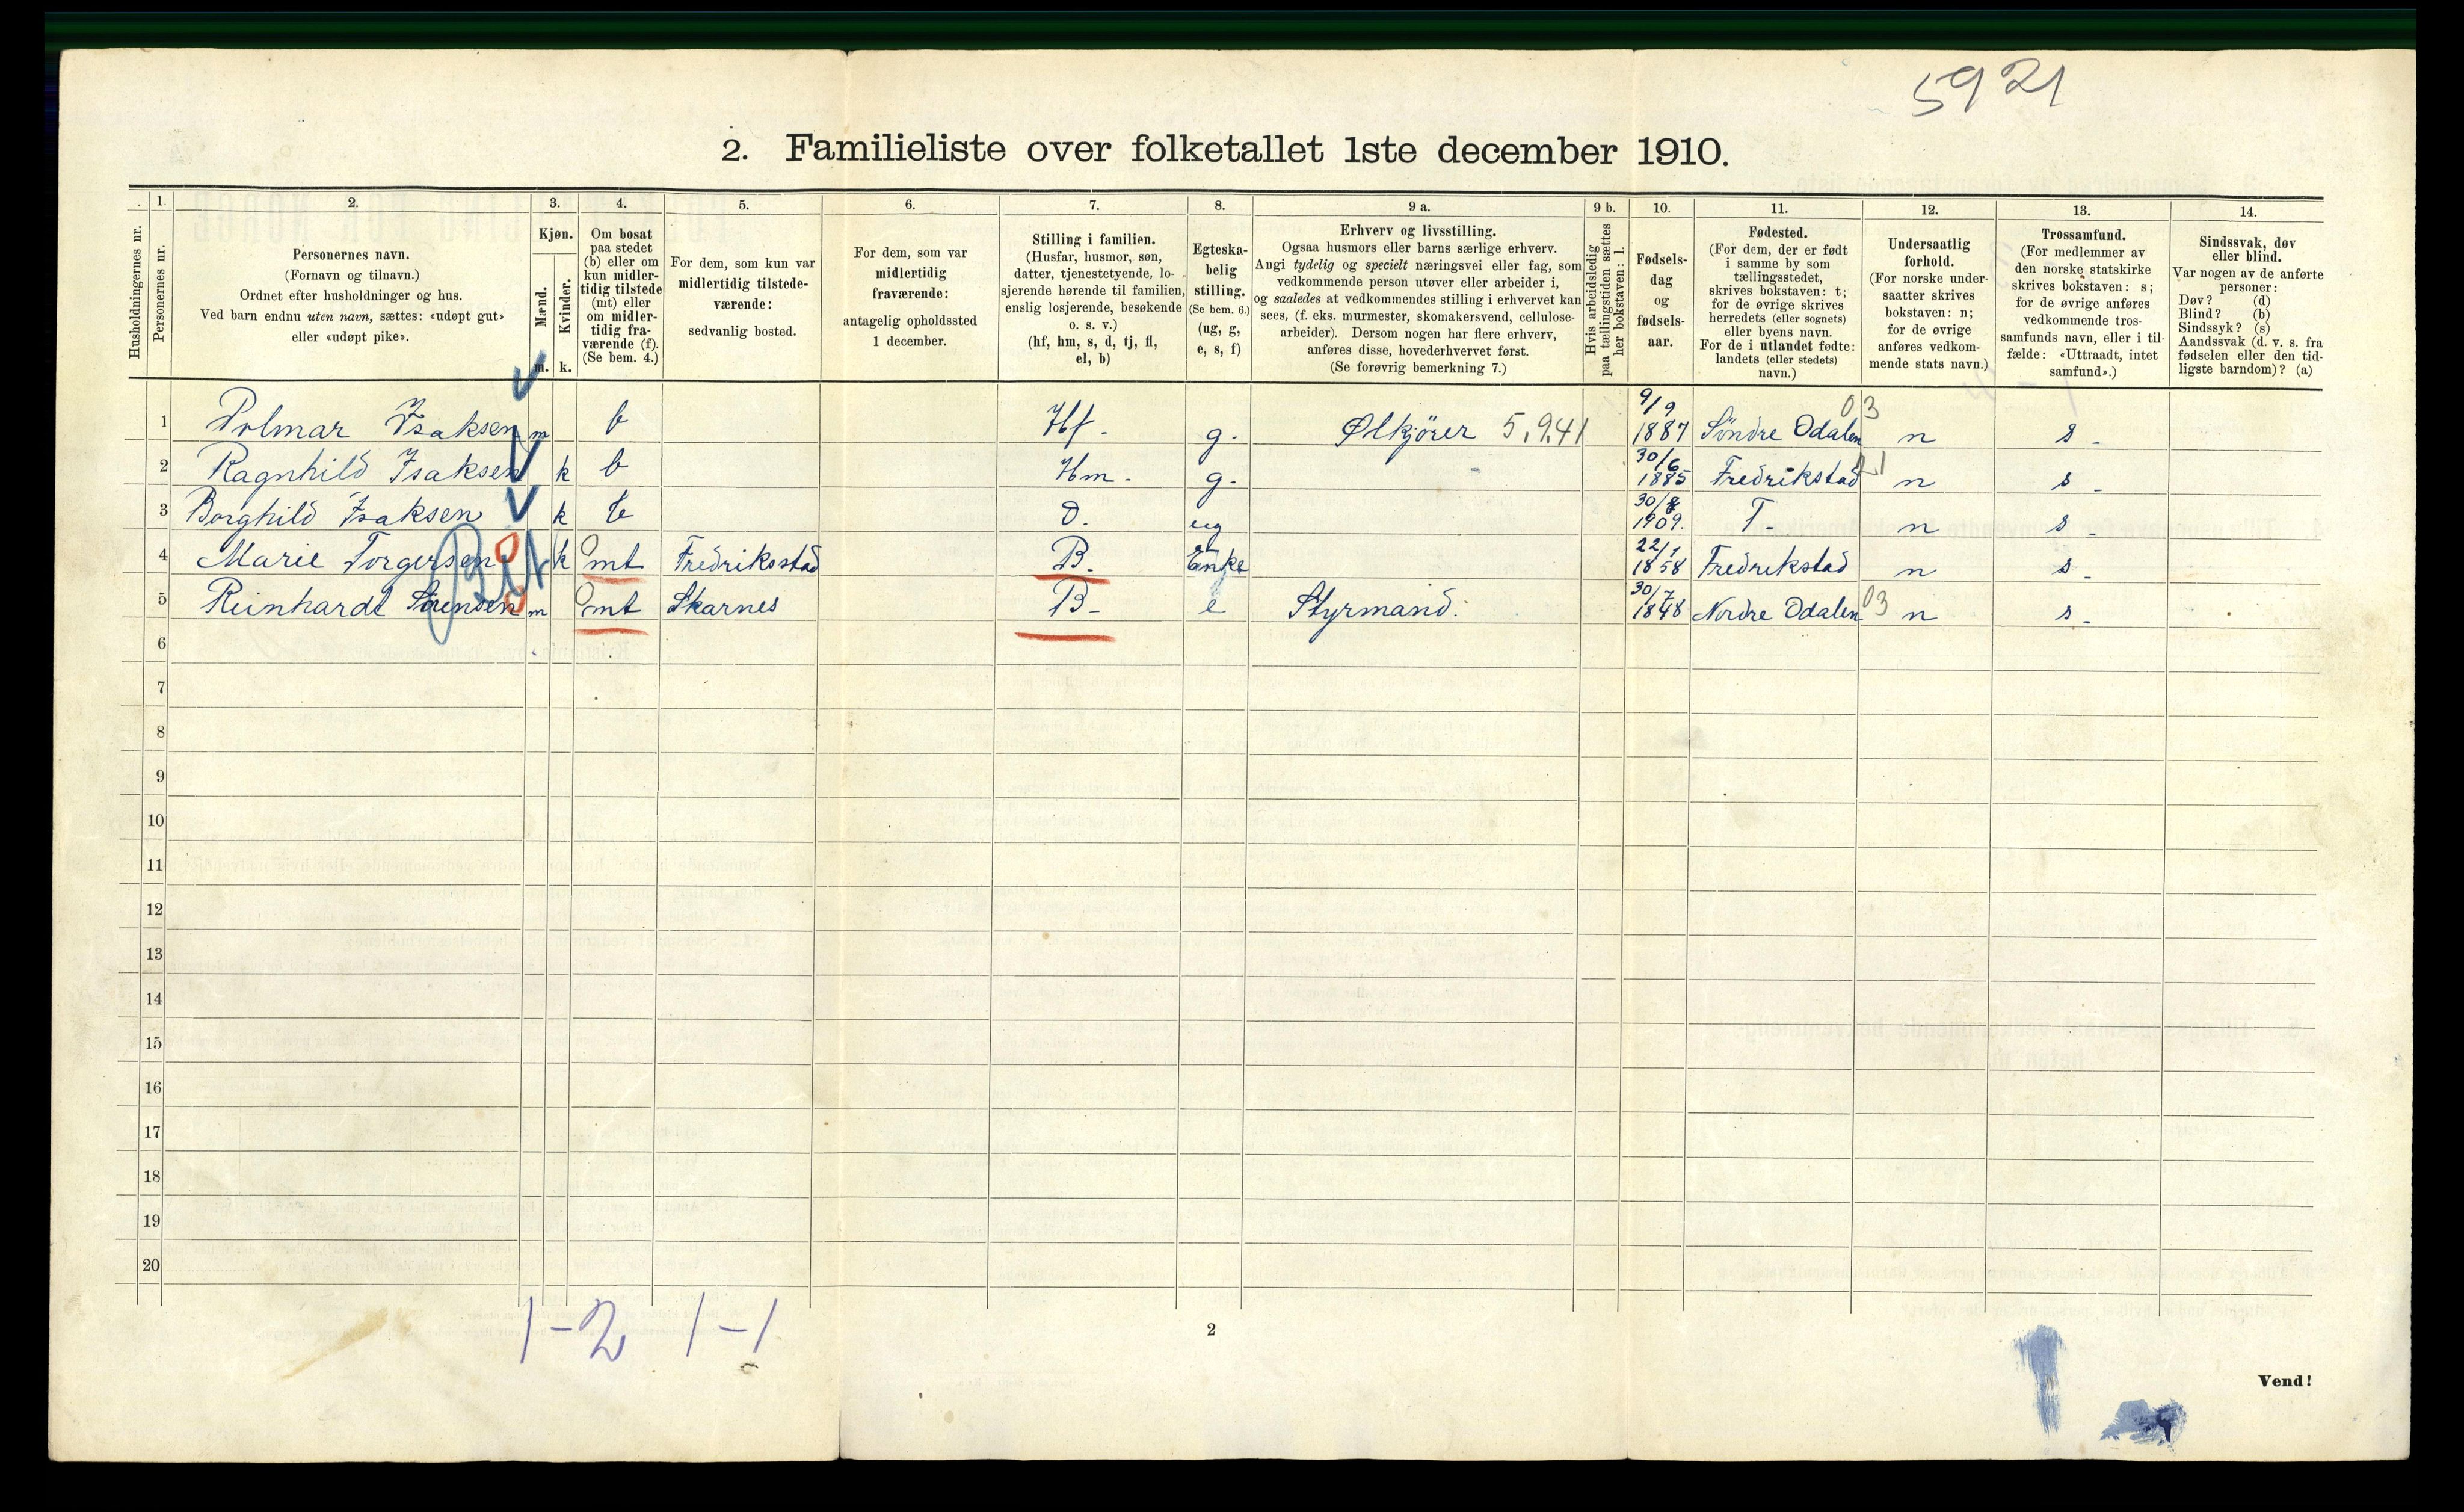 5921
2. Familieliste over folketallet 1ste december 1910.
Husholdningernes nr.
1.
Personernes nr.
2.
Personernes navn.
(Fornavn og tilnavn.)
Ordnet efter husholdninger og hus.
Ved barn endnu uten navn, sættes: «udøpt gut»
eller «udøpt pike».
3.
Kjøn.
Mænd.
m.
Kvinder.
k.
4.
Om bosat
paa stedet
(b) eller om
kun midler-
tidig tilstede
(mt) eller
om midler-
tidig fra-
værende (f).
(Se bem. 4.)
5.
For dem, som kun var
midlertidig tilstede-
værende:
sedvanlig bosted.
6.
For dem, som var
midlertidig
fraværende:
antagelig opholdssted
1 december.
7.
Stilling i familien.
(Husfar, husmor, søn,
datter, tjenestetyende, lo-
sjerende hørende til familien,
enslig losjerende, besøkende
o. s. v.)
(hf, hm, s, d, tj, fl,
el, b)
8.
Egteska-
belig
stilling.
(Se bem. 6.)
(ug, g,
e, s, f)
9 a.
Erhverv og livsstilling.
Ogsaa husmors eller barns særlige erhverv.
Angi tydelig og specielt næringsvei eller fag, som
vedkommende person utøver eller arbeider i,
og saaledes at vedkommendes stilling i erhvervet kan
sees, (f. eks. murmester, skomakersvend, cellulose-
arbeider). Dersom nogen har flere erhverv,
anføres disse, hovederhvervet først.
(Se forøvrig bemerkning 7.)
9 b.
Hvis arbeidsledig
paa tællingstiden sættes
her bokstaven: l.
10.
Fødsels-
dag
og
fødsels-
aar.
11.
Fødested.
(For dem, der er født
i samme by som
tællingsstedet,
skrives bokstaven: t;
for de øvrige skrives
herredets (eller sognets)
eller byens navn.
For de i utlandet fødte:
landets (eller stedets)
navn.)
12.
Undersaatlig
forhold.
(For norske under-
saatter skrives
bokstaven: n;
for de øvrige
anføres vedkom-
mende stats navn.)
13.
Trossamfund.
(For medlemmer av
den norske statskirke
skrives bokstaven: s;
for de øvrige anføres
vedkommende tros-
samfunds navn, eller i til-
fælde: «Uttraadt, intet
samfund».)
14.
Sindssvak, døv
eller blind.
Var nogen av de anførte
personer:
Døv? (d)
Blind? (b)
Sindssyk? (s)
Aandssvak (d. v. s. fra
fødselen eller den tid-
ligste barndom)? (a)
1 Isaksen m b Hf. g. Ølkjörer 5.9.41 9/9 1887 Söndre Odalen 03 n s
2 Ragnhild Isaksen k b Hm. g. 30/6 1885 Fredrikstad n s
3 Borghild Isaksen k b d. ug 1909. T. n s
4 Marie Torgersen k mt Fredriksstad B. Enke 22/1 1858 Fredrikstad n s
5 Reinhardt Sörensen m mt Skarnes B. e Styrmand. 30/7 1848 Nordre Odalen 03 n s
6
7
8
9
10
11
12
13
14
15
16
17
18
19
20
1-2 1-1
2
Vend!